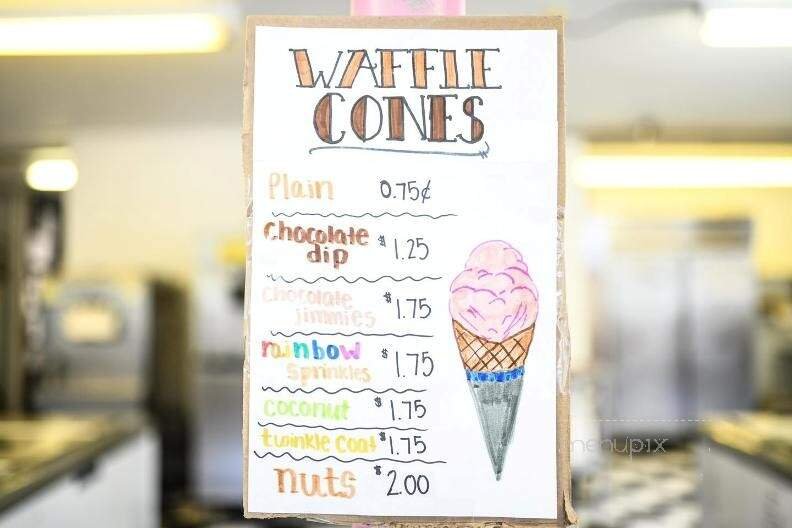 WAFFLE
CONES
Plain 0.75¢
chocolate
dip $1.25
chocolate
jimmies $1.75
rainbow
sprinkles $1.75
coconut $1.75
twinkle coat $1.75
nuts $2.00
menupix